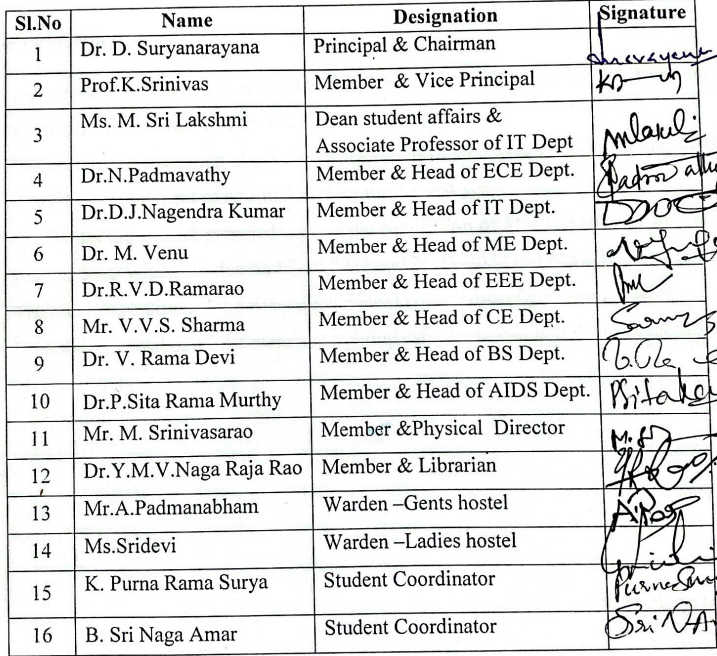 Sl.No Name Designation Signature
1 Dr. D. Suryanarayana Principal & Chairman
2 Prof.K.Srinivas Member & Vice Principal
3 Ms. M. Sri Lakshmi Dean student affairs &
Associate Professor of IT Dept
4 Dr.N.Padmavathy Member & Head of ECE Dept.
5 Dr.D.J.Nagendra Kumar Member & Head of IT Dept.
6 Dr. M. Venu Member & Head of ME Dept.
7 Dr.R.V.D.Ramarao Member & Head of EEE Dept.
8 Mr. V.V.S. Sharma Member & Head of CE Dept.
9 Dr. V. Rama Devi Member & Head of BS Dept.
10 Dr.P.Sita Rama Murthy Member & Head of AIDS Dept.
11 Mr. M. Srinivasarao Member &Physical Director
12 Dr.Y.M.V.Naga Raja Rao Member & Librarian
13 Mr.A.Padmanabham Warden –Gents hostel
14 Ms.Sridevi Warden –Ladies hostel
15 K. Purna Rama Surya Student Coordinator
16 B. Sri Naga Amar Student Coordinator